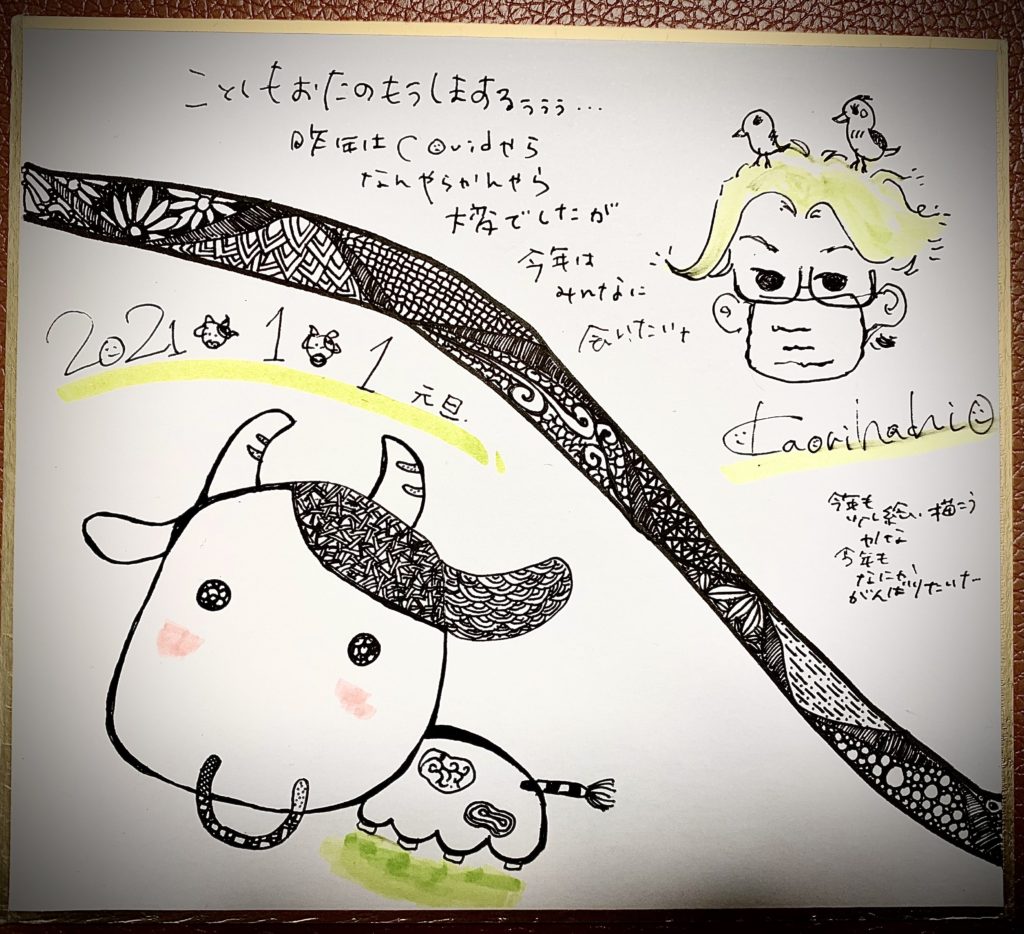 ことしもおたのもうしまするぅぅぅ...
昨年はCovidやら
なんやらかんやら
大変でしたが
今年は
みんなに
会いたいナ
2021 1 1 元旦.
Kaorihachi
今年も
絵い描こう
かな
今年も
なにか
がんばりたいナー